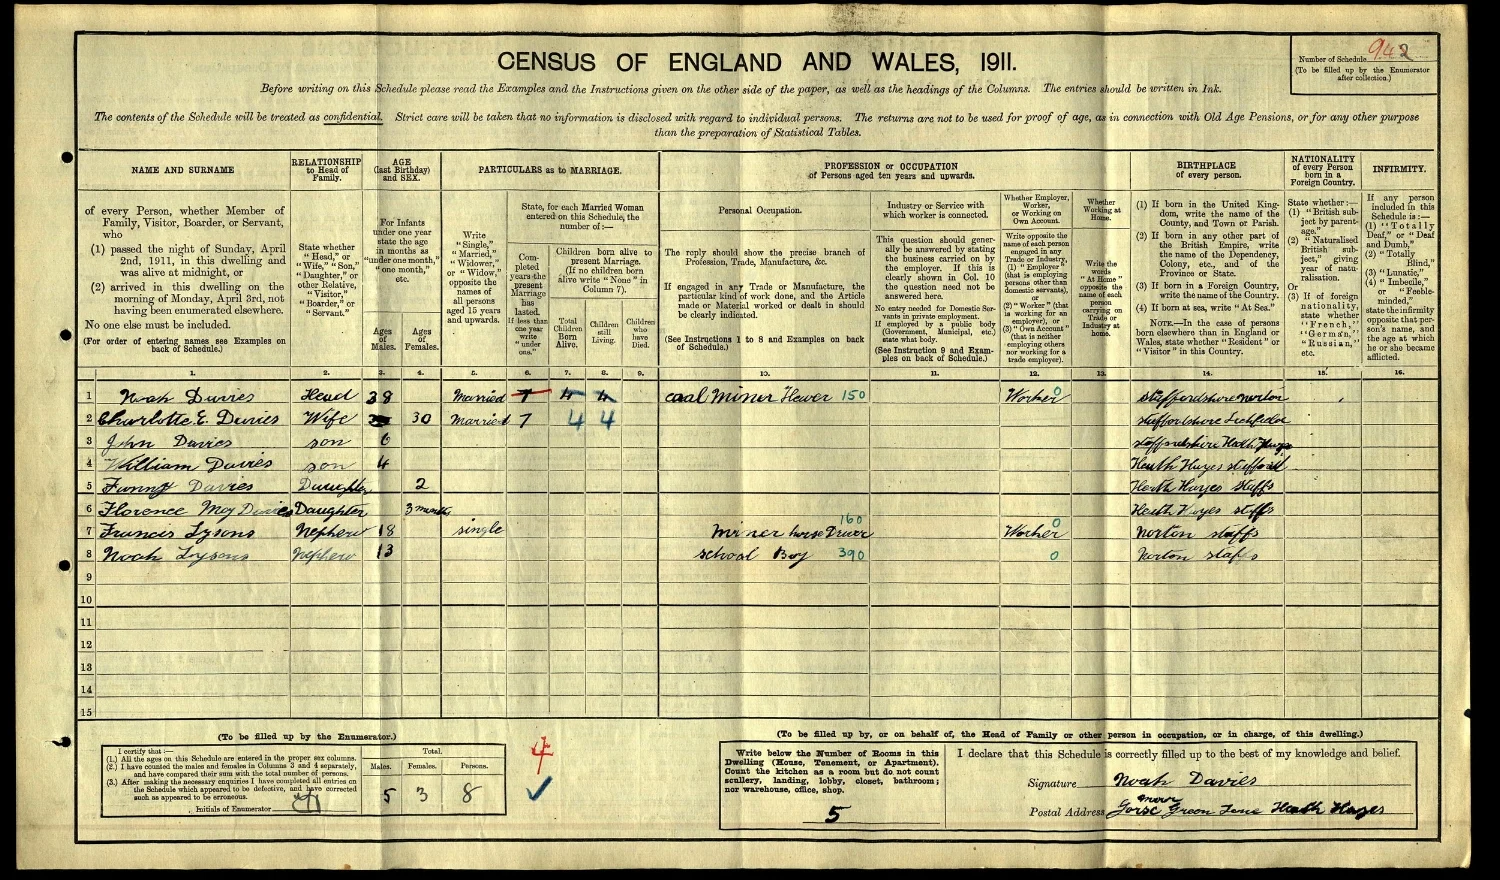 CENSUS OF ENGLAND AND WALES, 1911.
Number of Schedule 942
(To be filled up by the Enumerator after collection.)
Before writing on this Schedule please read the Examples and the Instructions given on the other side of the paper, as well as the headings of the Columns. The entries should be written in Ink.
The contents of the Schedule will be treated as confidential. Strict care will be taken that no information is disclosed with regard to individual persons. The returns are not to be used for proof of age, as in connection with Old Age Pensions, or for any other purpose
than the preparation of Statistical Tables.
NAME AND SURNAME
of every Person, whether Member of
Family, Visitor, Boarder, or Servant,
who
(1) passed the night of Sunday, April
2nd, 1911, in this dwelling and
was alive at midnight, or
(2) arrived in this dwelling on the
morning of Monday, April 3rd, not
having been enumerated elsewhere.
No one else must be included.
(For order of entering names see Examples on
back of Schedule.)
RELATIONSHIP
to Head of
Family.
State whether
"Head," or
"Wife," "Son,"
"Daughter," or
other Relative,
"Visitor,"
"Boarder," or
"Servant."
AGE
(last Birthday)
and SEX.
For Infants
under one year
state the age
in months as
"under one month,"
"one month,"
etc.
Ages
of
Males.
Ages
of
Females.
PARTICULARS as to MARRIAGE.
Write
"Single,"
"Married,"
"Widower,"
or "Widow,"
opposite the
names of
all persons
aged 15 years
and upwards.
State, for each Married Woman
entered on this Schedule, the
number of:—
Completed
years the
present
Marriage
has
lasted.
If less than
one year
write
"under
one."
Children born alive to
present Marriage.
(If no children born
alive write "None" in
Column 7).
Total
Children
Born
Alive.
Children
still
Living.
Children
who
have
Died.
PROFESSION or OCCUPATION
of Persons aged ten years and upwards.
Personal Occupation.
The reply should show the precise branch of
Profession, Trade, Manufacture, &c.
If engaged in any Trade or Manufacture, the
particular kind of work done, and the Article
made or Material worked or dealt in should
be clearly indicated.
(See Instructions 1 to 8 and Examples on back
of Schedule.)
Industry or Service with
which worker is connected.
This question should generally
be answered by stating
the business carried on by
the employer. If this is
clearly shown in Col. 10
the question need not be
answered here.
No entry needed for Domestic Servants
in private employment.
If employed by a public body
(Government, Municipal, etc.)
state what body.
(See Instruction 9 and Examples
on back of Schedule.)
Whether Employer,
Worker,
or Working on
Own Account.
Write opposite the
name of each person
engaged in any
Trade or Industry,
(1) "Employer"
(that is employing
persons other than
domestic servants),
or
(2) "Worker" (that
is working for an
employer), or
(3) "Own Account"
(that is neither
employing others
nor working for a
trade employer).
Whether
Working at
Home.
Write the
words
"At Home"
opposite the
name of each
person
carrying on
Trade or
Industry at
home.
BIRTHPLACE
of every person.
(1) If born in the United Kingdom,
write the name of the
County, and Town or Parish.
(2) If born in any other part of
the British Empire, write
the name of the Dependency,
Colony, etc., and of the
Province or State.
(3) If born in a Foreign Country,
write the name of the Country.
(4) If born at sea, write "At Sea."
NOTE.—In the case of persons
born elsewhere than in England or
Wales, state whether "Resident" or
"Visitor" in this Country.
NATIONALITY
of every Person
born in a
Foreign Country.
State whether:—
(1) "British subject
by parentage."
(2) "Naturalised
British subject,"
giving
year of naturalisation.
Or
(3) If of foreign
nationality,
state whether
"French,"
"German,"
"Russian,"
etc.
INFIRMITY.
If any person
included in this
Schedule is:—
(1) "Totally
Deaf," or "Deaf
and Dumb,"
(2) "Totally
Blind,"
(3) "Lunatic,"
(4) "Imbecile,"
or "Feeble-minded,"
state the infirmity
opposite that person's
name, and
the age at which
he or she became
afflicted.
1. 2. 3. 4. 5. 6. 7. 8. 9. 10. 11. 12. 13. 14. 15. 16.
1 Noah Davies Head 38 Married 7 4 4 coal Miner Hewer 150 Worker 0 Staffordshire norton
2 Charlotte E. Davies Wife 30 Married 7 4 4 staffordshire Lichfield
3 John Davies son 6 staffordshire Heath Hayes
4 William Davies son 4 Heath Hayes stafford
5 Fanny Davies Daughter 2 Heath Hayes Staffs
6 Florence May Davies Daughter 3 months Heath Hayes staffs
7 Francis Lysons Nephew 18 single miner horse Driver 160 Worker 0 Norton staffs
8 Noah Lysons Nephew 13 school Boy 390 0 Norton staffs
9
10
11
12
13
14
15
(To be filled up by the Enumerator.)
I certify that:—
(1.) All the ages on this Schedule are entered in the proper sex columns.
(2.) I have counted the males and females in Columns 3 and 4 separately,
and have compared their sum with the total number of persons.
(3.) After making the necessary enquiries I have completed all entries on
the Schedule which appeared to be defective, and have corrected
such as appeared to be erroneous.
Initials of Enumerator
Total.
Males. Females. Persons.
5 3 8
4
(To be filled up by, or on behalf of, the Head of Family or other person in occupation, or in charge, of this dwelling.)
Write below the Number of Rooms in this
Dwelling (House, Tenement, or Apartment).
Count the kitchen as a room but do not count
scullery, landing, lobby, closet, bathroom;
nor warehouse, office, shop.
5
I declare that this Schedule is correctly filled up to the best of my knowledge and belief.
Signature Noah Davies
Postal Address Gorse moor Green Lane Heath Hayes